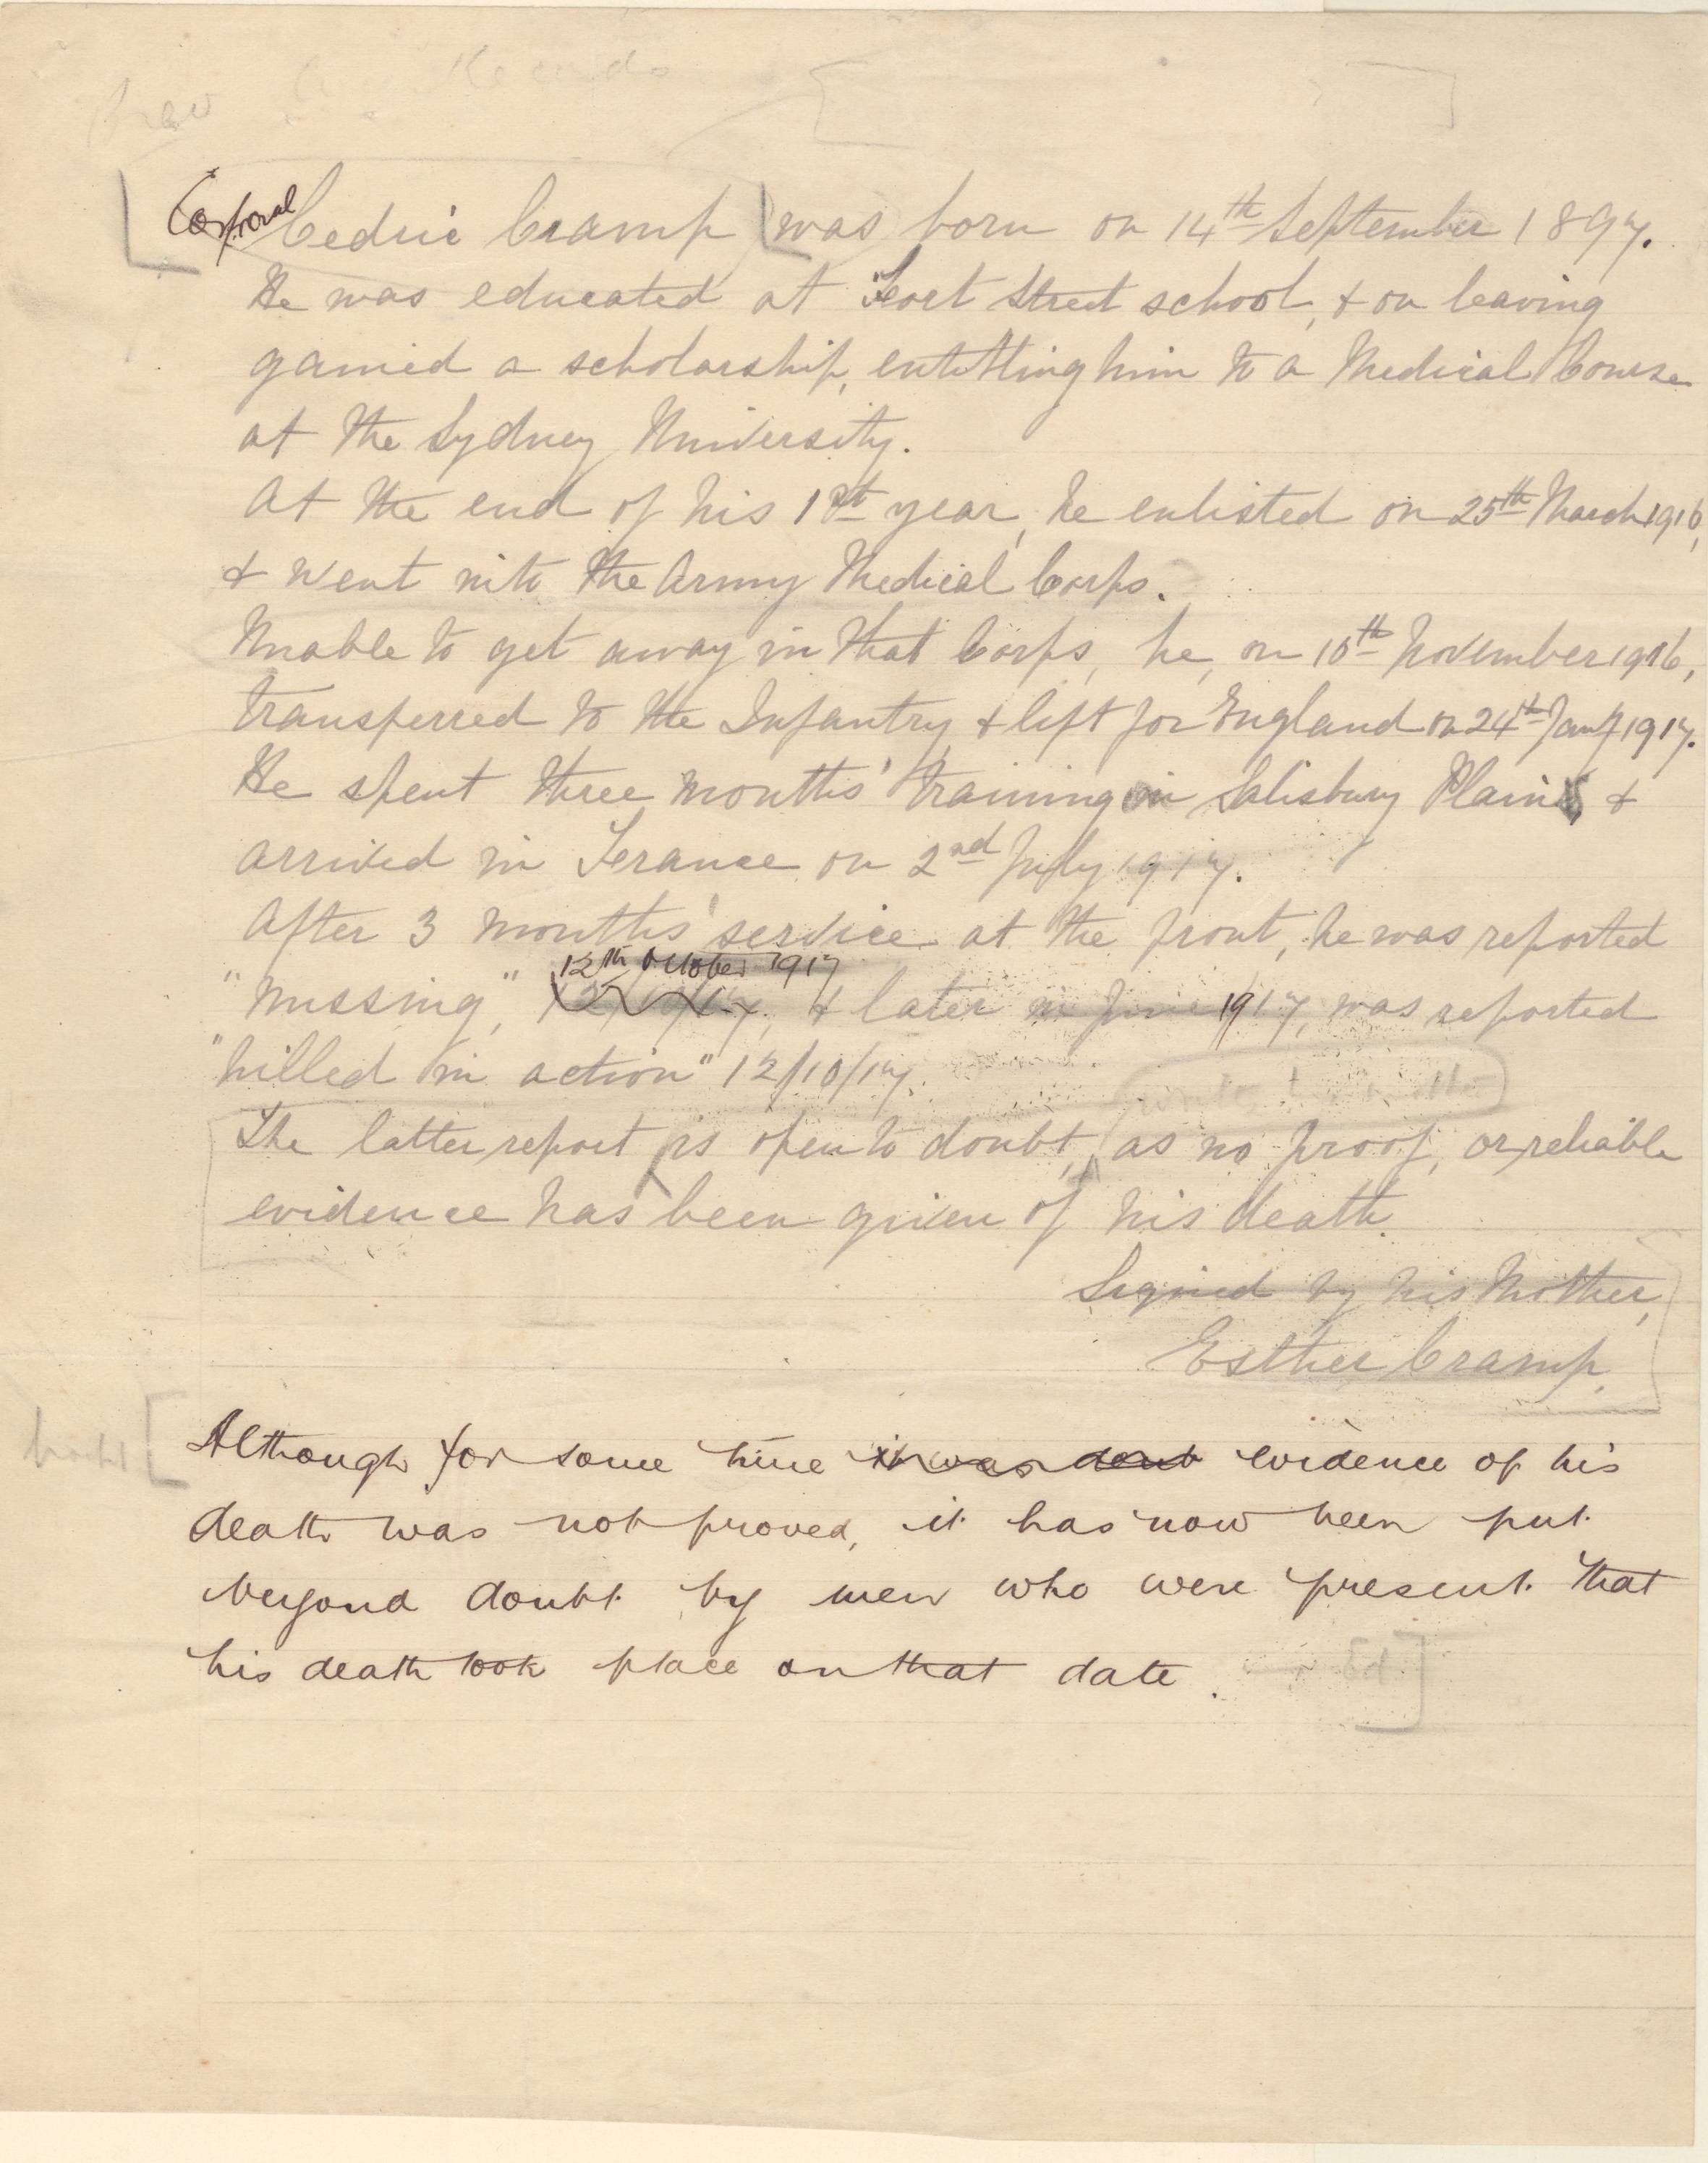 Records
Corporal Cedric Cramp was born on 14th September 1897.
He was educated at Fort Street school, & on leaving
gained a scholarship, entitling him to a Medical Course
at the Sydney University.
At the end of his 1st year, he enlisted on 25th March 1916,
& went into the Army Medical Corps.
Unable to get away in that Corps, he, on 10th November 1916,
transferred to the Infantry, & left for England on 24th Jany 1917.
He spent three months' training on Salisbury Plain, &
arrived in France on 2nd July 1917.
After 3 months' service at the front, he was reported
12th October 1917
"Missing," 12/10/17, & later in June 1917, was reported
"killed in action" 12/10/17.
The latter report is open to doubt, as no proof, or reliable
evidence has been given of his death.
Signed by his Mother,
Esther Cramp.
Although for some time it was doub evidence of his
death was not proved, it has now been put
beyond doubt by men who were present that
his death took place on that date.
Ed